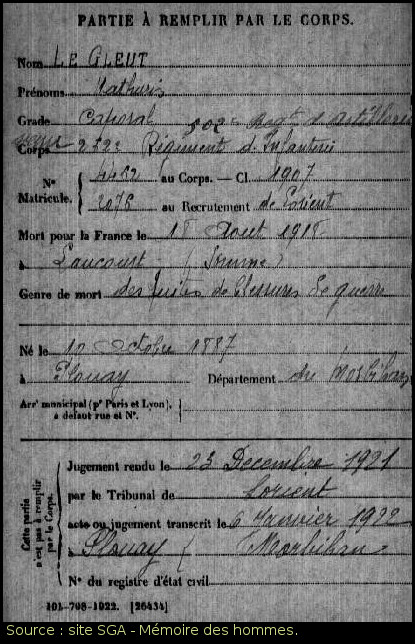 PARTIE À REMPLIR PAR LE CORPS.
Nom LE GLEUT
Prénoms Mathurin
Grade Caporal 502e Regt d'Artillerie
Corps 232e Régiment d'Infanterie
Nº Matricule. { 4412 au Corps. — Cl. 1907
2076 au Recrutement de Lorient
Mort pour la France le 18 Aout 1918
à Laucourt (Somme)
Genre de mort des suites de blessures de guerre
Né le 12 Octobre 1887
à Plouay Département du Morbihan
Arrt municipal (pr Paris et Lyon), à défaut rue et Nº. {
Cette partie n'est pas à remplir par le Corps. {
Jugement rendu le 23 Decembre 1921
par le Tribunal de Lorient
acte ou jugement transcrit le 6 Janvier 1922
à Plouay (Morbihan)
Nº du registre d'état civil
101-708-1922. [26434]
Source : site SGA - Mémoire des hommes.